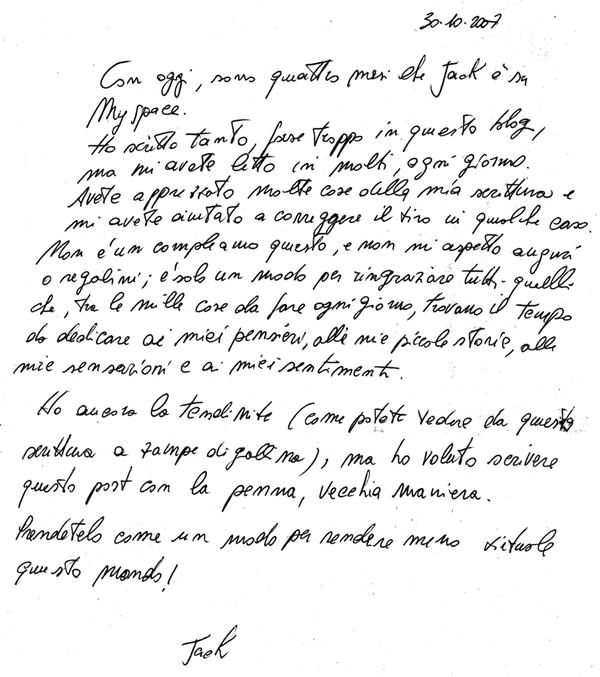 30.10.2007
Con oggi, sono quattro mesi che Jack è su
Myspace.
Ho scritto tanto, forse troppo in questo blog,
ma mi avete letto in molti, ogni giorno.
Avete apprezzato, molte cose della mia scrittura e
mi avete aiutato a correggere il tiro in qualche caso.
Non è un compleanno questo, e non mi aspetto auguri
o regalini; è solo un modo per ringraziare tutti quelli
che, tra le mille cose da fare ogni giorno, trovano il tempo
da dedicare ai miei pensieri, alle mie piccole storie, alle
mie sensazioni e ai miei sentimenti.
Ho ancora la tendinite (come potete vedere da questa
scrittura a zampe di gallina), ma ho voluto scrivere
questo post con la penna, vecchia maniera.
Prendetelo come un modo per rendere meno virtuale
questo mondo!
Jack